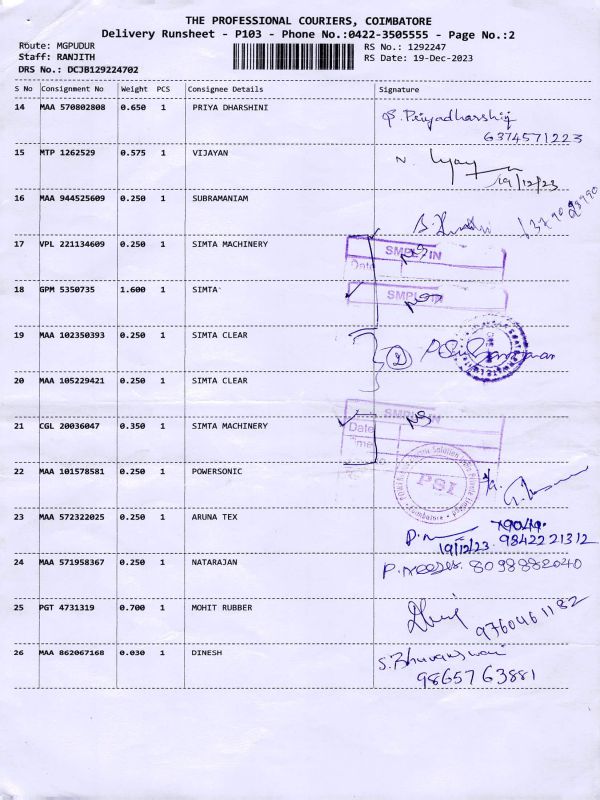 THE PROFESSIONAL COURIERS, COIMBATORE
Delivery Runsheet - P103 - Phone No.:0422-3505555 - Page No.:2
Route: MGPUDUR
RS No.: 1292247
Staff: RANJITH
RS Date: 19-Dec-2023
DRS No.: DCJB129224702
S No Consignment No Weight PCS Consignee Details Signature
14 MAA 570802808 0.650 1 PRIYA DHARSHINI
Priyadharshi
6374571223
15 MTP 1262529 0.575 1 VIJAYAN
19/12/23
16 MAA 944525609 0.250 1 SUBRAMANIAM
17 VPL 221134609 0.250 1 SIMTA MACHINERY
Date
18 GPM 5350735 1.600 1 SIMTA
19 MAA 102350393 0.250 1 SIMTA CLEAR
2
20 MAA 105229421 0.250 1 SIMTA CLEAR
21 CGL 20036047 0.350 1 SIMTA MACHINERY
Date
22 MAA 101578581 0.250 1 POWERSONIC
PSI
Coimbatore
23 MAA 572322025 0.250 1 ARUNA TEX
19/12/23. 9842221312
24 MAA 571958367 0.250 1 NATARAJAN
8098882040
25 PGT 4731319 0.700 1 MOHIT RUBBER
9760461182
26 MAA 862067168 0.030 1 DINESH
S. Bhuvaneswari
9865763881